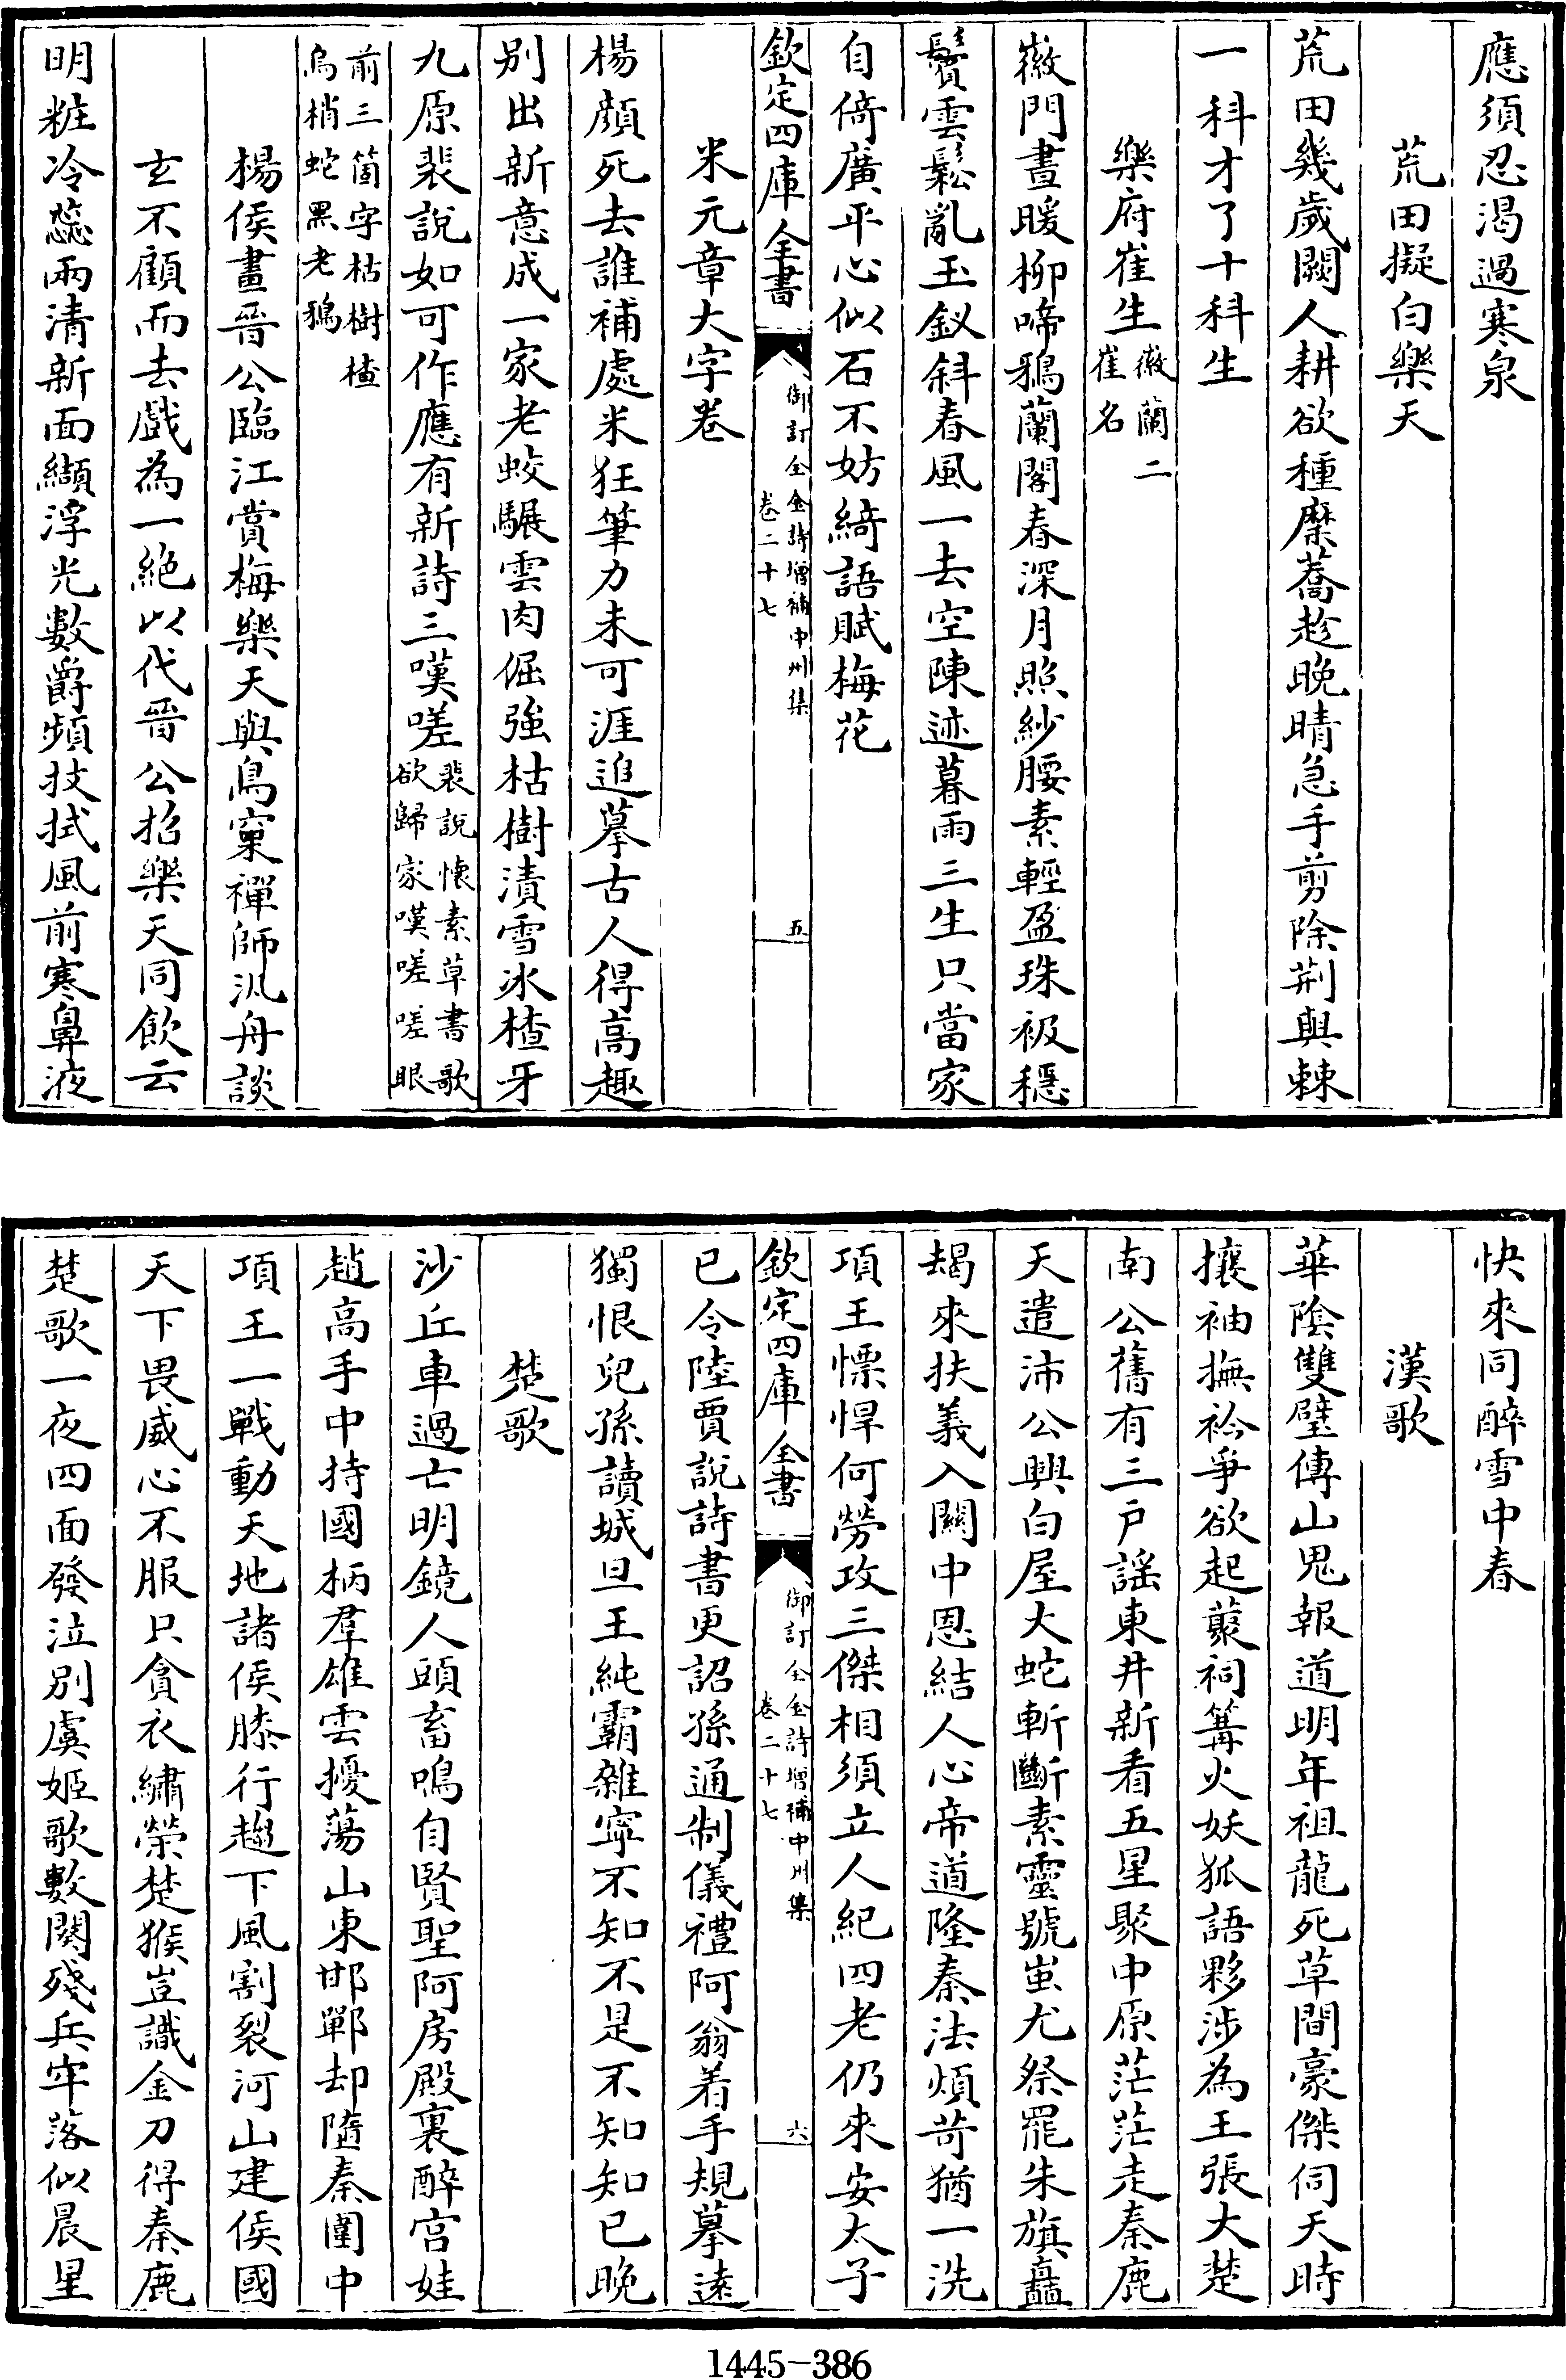 應須忍渴過寒泉
荒田擬白樂天
荒田幾歲闕人耕欲種穈蕎趁晚晴急手剪除荆與棘
一科才了十科生
樂府崔生徽蘭二崔名
徽門晝暖柳啼鴉蘭閣春深月照紗腰素輕盈珠衱穩
鬢雲鬆亂玉釵斜春風一去空陳迹暮雨三生只當家
自倚廣平心似石不妨綺語賦梅花
欽定四庫全書
御訂全金詩增補中州集
卷二十七
五
米元章大字卷
楊顔死去誰補處米狂筆力未可涯追摹古人得高趣
别出新意成一家老蛟騣雲肉倔強枯樹漬雪冰楂牙
九原裴說如可作應有新詩三嘆嗟裴說懷素草書歌
欲歸家嘆嗟嗟眼
前三箇字枯樹楂
烏梢蛇黑老鴉
楊侯畫晉公臨江賞梅樂天與鳥窠禪師汎舟談
玄不顧而去戲為一絶以代晉公招樂天同飲云
明粧冷蕊兩清新面纈浮光數爵頻抆拭風前寒鼻液
快來同醉雪中春
漢歌
華陰雙璧傳山鬼報道明年祖龍死草間豪傑伺天時
攘袖撫衿爭欲起藂祠篝火妖狐語夥涉為王張大楚
南公舊有三戶謡東井新看五星聚中原茫茫走秦鹿
天遣沛公興白屋大蛇斬斷素靈號蚩尤祭罷朱旗矗
朅來扶義入關中恩結人心帝道隆秦法煩苛猶一洗
項王慓悍何勞攻三傑相須立人紀四老仍來安太子
欽定四庫全書
御訂全金詩增補中州集
卷二十七
六
已令陸賈說詩書更詔孫通制儀禮阿翁着手規摹逺
獨恨兒孫讀城旦王純霸雜寜不知不是不知知已晚
楚歌
沙丘車過亡明鏡人頭畜鳴自賢聖阿房殿裏醉宮娃
趙高手中持國柄羣雄雲擾蕩山東邯鄲却隨秦圍中
項王一戰動天地諸侯膝行趨下風割裂河山建侯國
天下畏威心不服只貪衣繡榮楚猴豈識金刀得秦鹿
楚歌一夜四面發泣别虞姬歌數闋殘兵牢落似晨星
1445-386